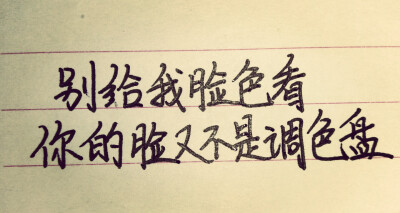 别给我脸色看
你的脸又不是调色盘